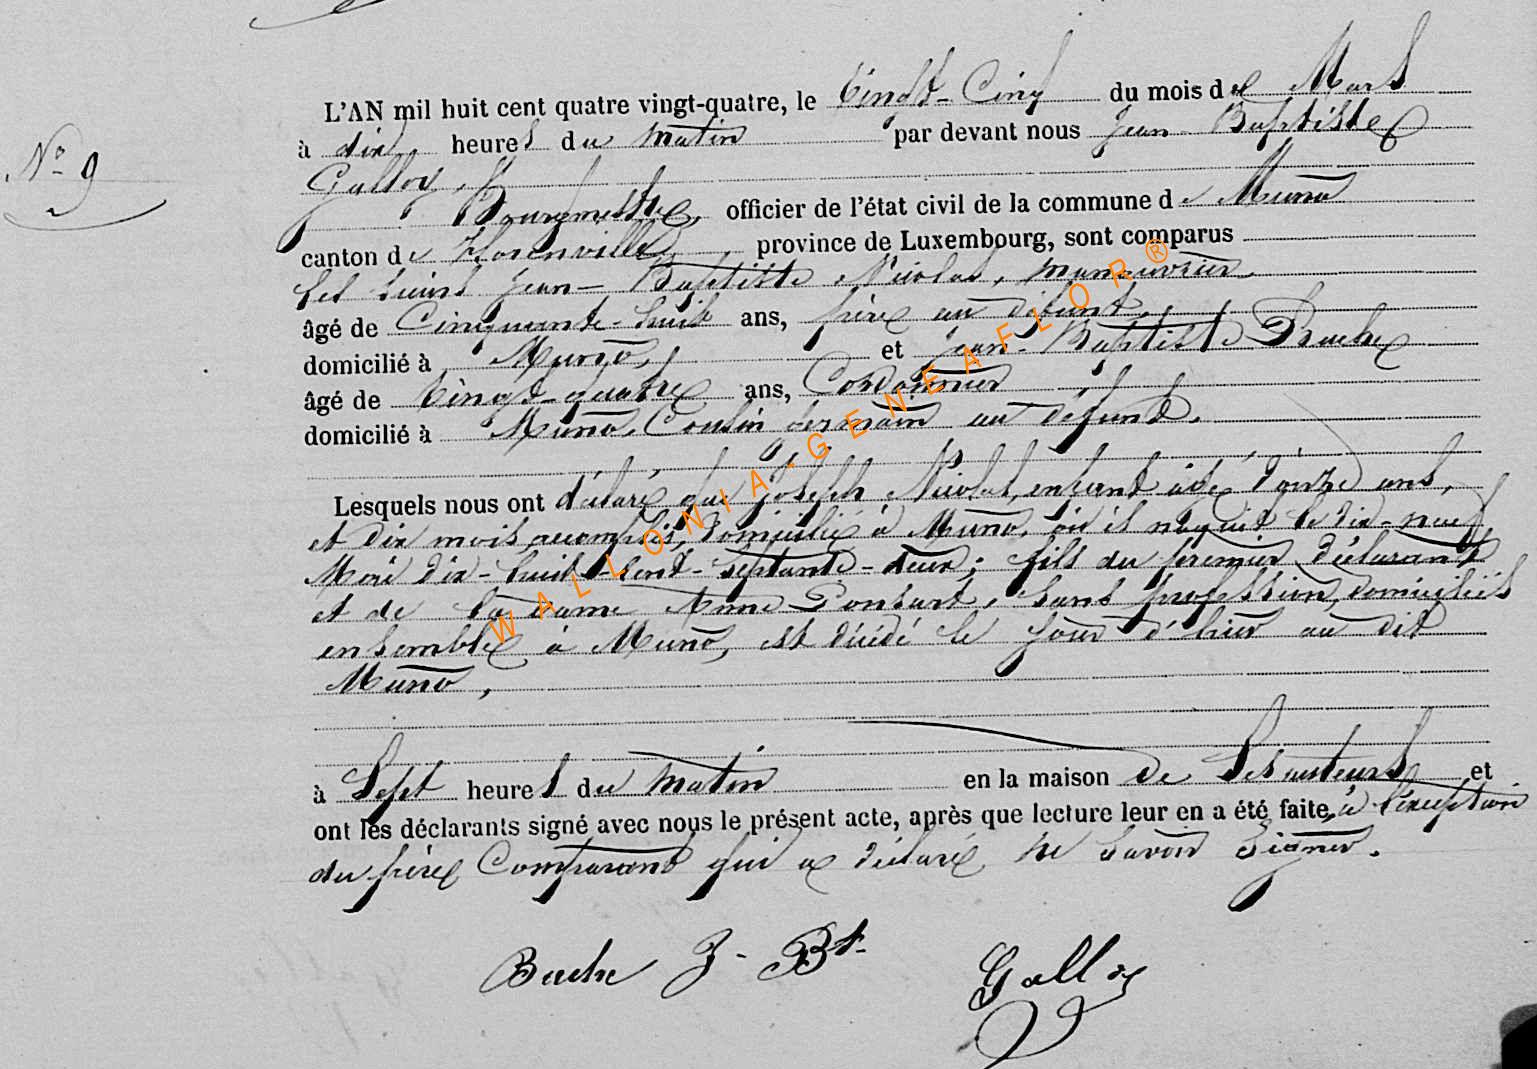 L'AN mil huit cent quatre vingt-quatre, le Vingt-Cinq du mois de Mars
Nº 9
à dix heures du matin par devant nous Jean Baptiste
Galloy,
Bourgmestre, officier de l'état civil de la commune de Muno
canton de Florenville province de Luxembourg, sont comparus
les sieurs Jean-Baptiste Nicolas, manouvrier
âgé de Cinquante-huit ans, père au défunt,
domicilié à Muno, et Jean-Baptiste
âgé de Vingt-quatre ans, Cordonnier
domicilié à Muno, Cousin germain au défunt.
Lesquels nous ont déclaré que Joseph Nicolas, enfant âgé d'onze ans,
et dix mois accomplis, domicilié à Muno, où il naquit le dix-neuf
Mai dix-huit-cent-septante-deux; fils du premier déclarant
et de la dame Anne Ponsart, sans profession, domiciliés
ensemble à Muno, est décédé le jour d'hier au dit
Muno,
à Sept heures du matin en la maison de Ses auteurs et
ont les déclarants signé avec nous le présent acte, après que lecture leur en a été faite, à l'exception
du père Comparant qui a déclaré ne savoir signer.
J. Bt. Galloy
WALLONIA-GENEAFLOR®